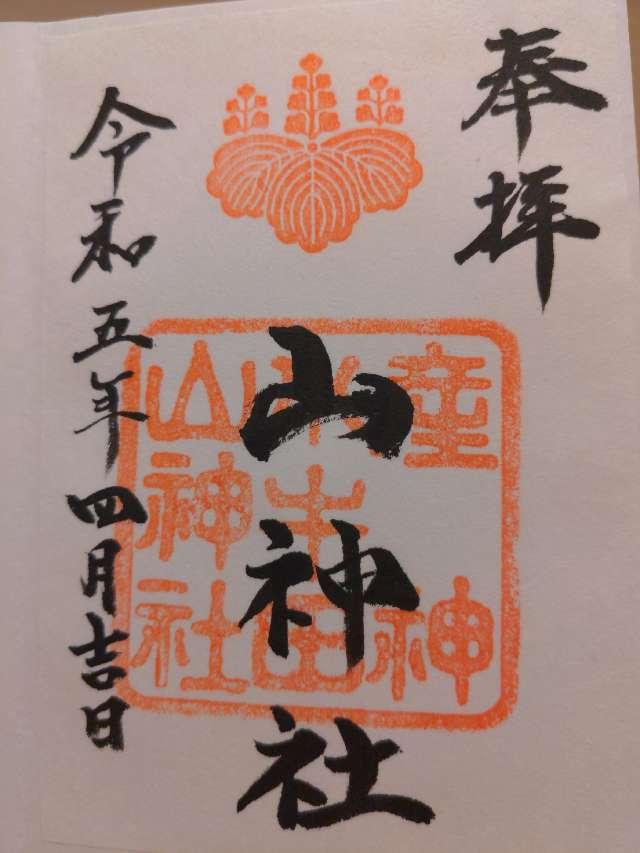 奉拝
山神社
令和五年四月吉日
山神社